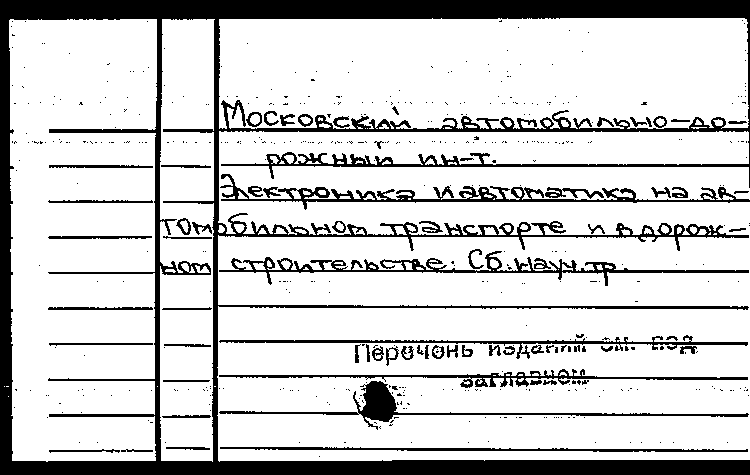 Московский автомобильно-до-
рожный ин-т.
Электроника и автоматика на ав-
томобильном транспорте и в дорож-
ном строительстве: Сб. науч. тр.
Перечень изданий см. под
заглавием